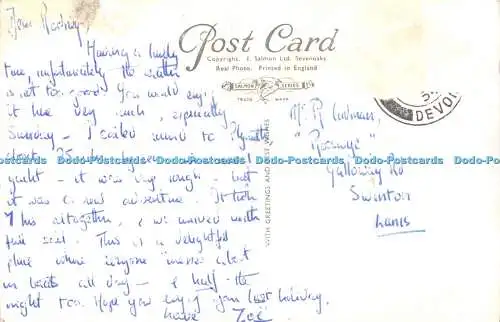 Dear Rodney,
Having a lovely
time, unfortunately the weather
is not too good. You would enjoy
it here very much, especially
Sunday - I sailed round to Plymouth
about 35
yacht - it was very rough - but
it was a new adventure. It took
7 hrs altogether, & we arrived with
fair
This is a delightful
place where everyone "messes about
in boats all day - & half the
night too. Hope you enjoy your last holiday.
Love Zoë
Post Card
Copyright. J. Salmon Ltd. Sevenoaks
Real Photo. Printed in England
SALMON SERIES
TRADE MARK
WITH GREETINGS AND
WISHES
DEVON
Mr R
Galloway Rd
Swinton
Lancs
Dodo-Postcards Dodo-Postcards Dodo-Postcards Dodo-Postcards Dodo-Postcards